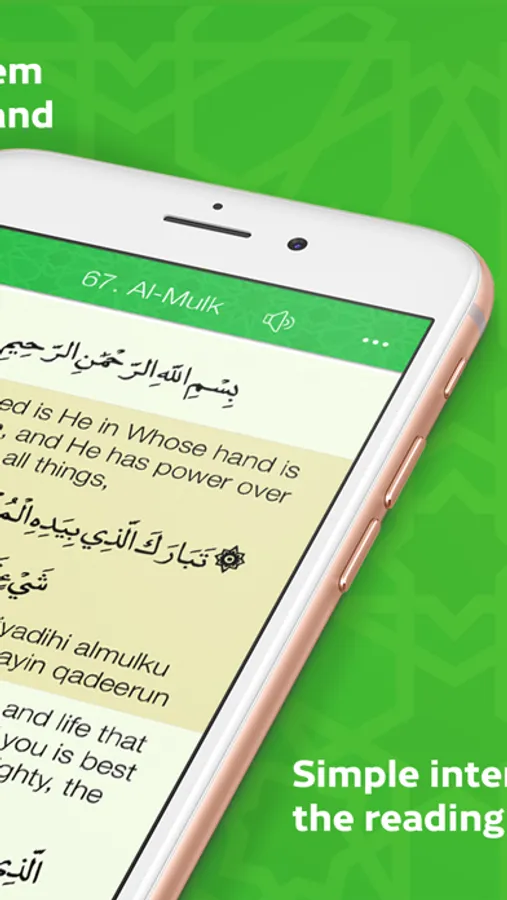 em
and
67. Al-Mulk
بِسْمِ اللَّهِ الرَّحْمَٰنِ الرَّحِيمِ
ed is He in Whose hand is
, and He has power over
all things,
تَبَارَكَ الَّذِي بِيَدِهِ الْمُ
شَيْءٍ
yadihi almulku
ayin qadeerun
and life that
you is best
ighty, the
الَّذِي
Simple inter
the reading